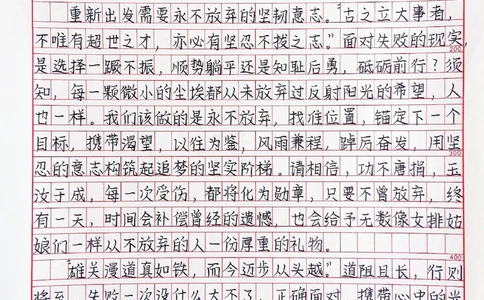 重新出发需要永不放弃的坚韧意志。“古之立大事者，
不唯有超世之才，亦必有坚忍不拔之志。”面对失败的现实，
是选择一蹶不振，顺势躺平还是知耻后勇，砥砺前行？须
知，每一颗微小的尘埃都从未放弃过反射阳光的希望，人
也一样。我们该做的是永不放弃，找准位置，锚定下一个
目标，携带渴望，以往为鉴，风雨兼程，踔厉奋发，用坚
忍的意志构筑起追梦的坚实阶梯。请相信，功不唐捐，玉
汝于成，每一次受伤，都将化为勋章，只要不曾放弃，终
有一天，时间会补偿曾经的遗憾，也会给予无数像女排姑
娘们一样从不放弃的人一份厚重的礼物。
“雄关漫道真如铁，而今迈步从头越。”道阻且长，行则
将至，失败一次没什么大不了，正确面对，携希望前
200
300
400